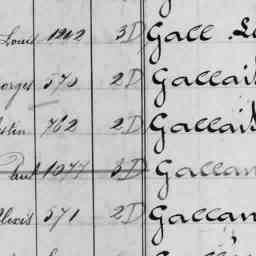 Louis 1202 3D Gall
orges 570 2D Gallais
stin 762 2D Gallais
Paul 1077 3D Gallan
lexis 571 2D Gallan